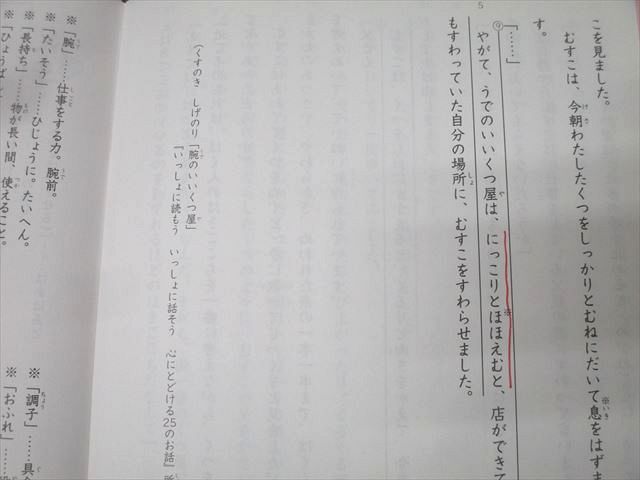 こを見ました。
むすこは、今朝わたしたくつをしっかりとむねにだいて※息をはずま
す。
「……」
⑨やがて、うでのいいくつ屋は、にっこりと※ほほえむと、店ができて
もすわっていた自分の場所に、むすこをすわらせました。
(くすのき しげのり「腕のいいくつ屋」
『いっしょに読もう いっしょに話そう 心にとどける25のお話』所
※「腕」……仕事をする力。腕前。
※「たいそう」……ひじょうに。たいへん。
※「長持ち」……物が長い間、使えること。
※「ひょうば
※「調子」……具
※「おふれ」……
5